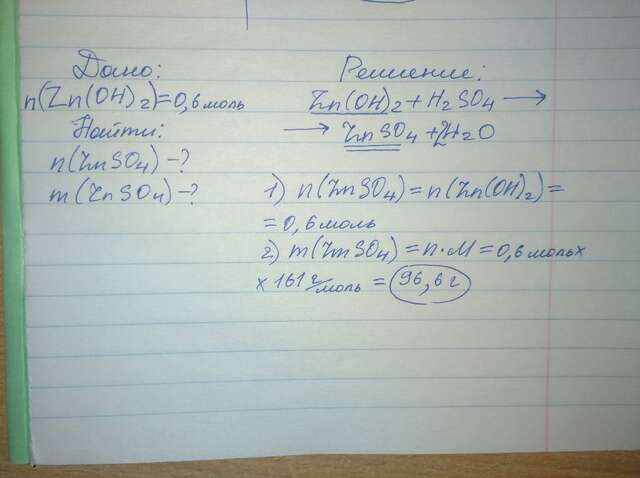 Дано:
n(Zn(OH)2)=0,6 моль
Найти:
n(ZnSO4)-?
m(ZnSO4)-?
Решение:
Zn(OH)2+H2SO4 →
→ ZnSO4+2H2O
1) n(ZnSO4)=n(Zn(OH)2)=
=0,6 моль
2) m(ZnSO4)=n·M=0,6 моль×
×161 г/моль=96,6 г